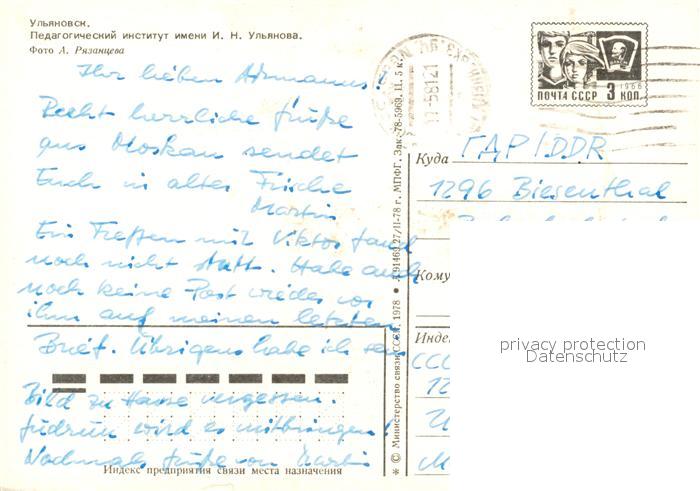 Ульяновск.
Педагогический институт имени И. Н. Ульянова.
Фото А. Рязанцева
Ihr lieben
Recht herzliche Grüße
aus Moskau sendet
Euch in alter Frische
Martin
Ein Treffen mit Viktor fand
noch nicht statt. Habe auch
noch keine Post wieder von
ihm auf meinen letzten
Brief. Übrigens habe ich sein
Bild zu Hause vergessen.
Gudrun wird es mitbringen!
Nochmals Grüße von Martin
Индекс предприятия связи места назначения
* © Министерство связи СССР, 1978 ● 27/II-78 г. МПФГ. Зак. 78-5969. Ц. 5 к.
1966
ПОЧТА СССР 3 КОП.
Куда ГДР/DDR
1296 Biesenthal
Кому
Индекс
ССС
12
privacy protection
Datenschutz